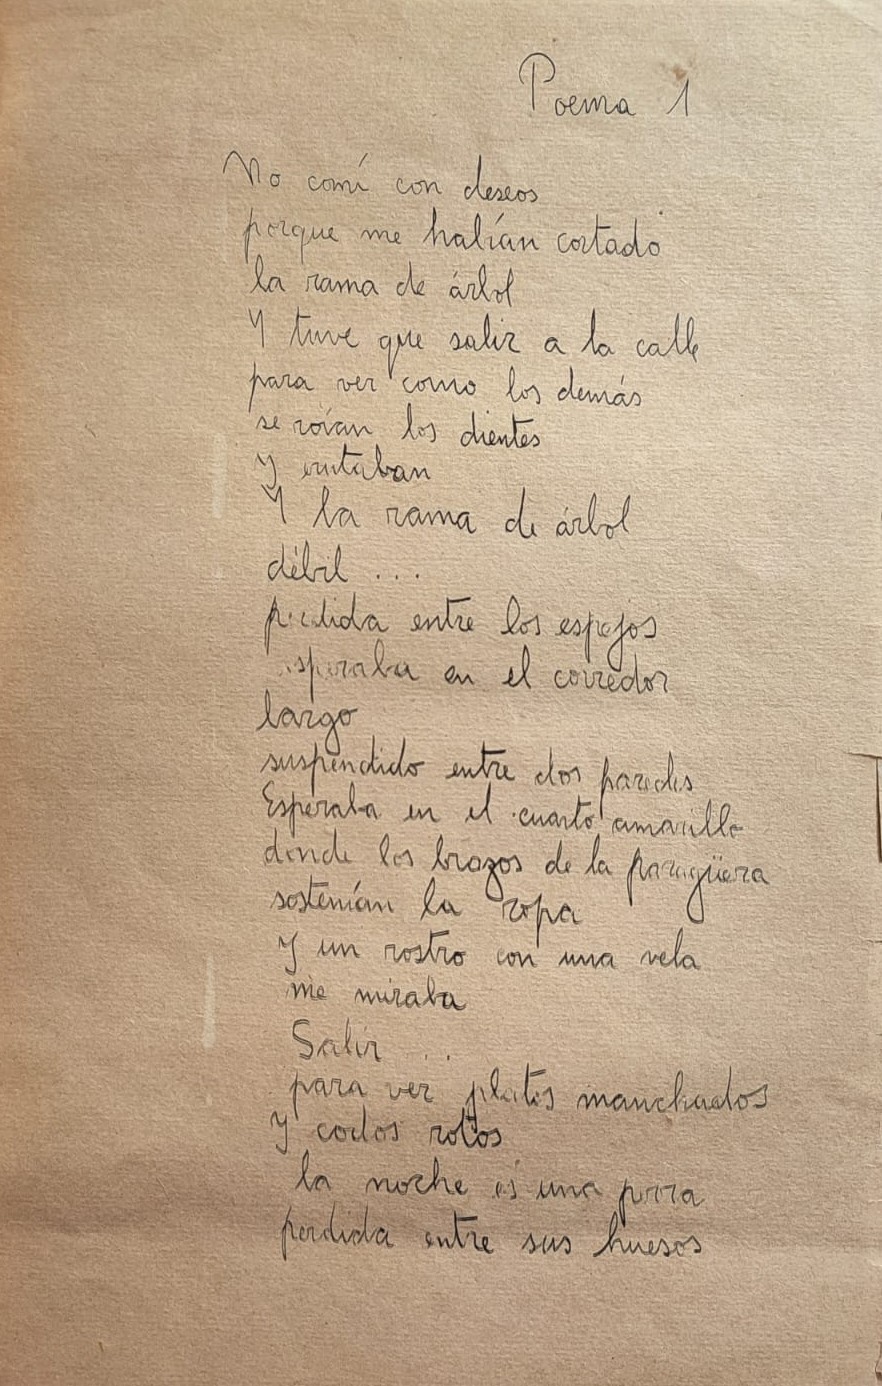 Poema 1
No comí con deseos
porque me habían cortado
la rama de árbol
Y tuve que salir a la calle
para ver como los demás
se roían los dientes
Y
Y la rama de árbol
débil ...
perdida entre los espejos
esperaba en el corredor
largo
suspendido entre dos paredes
Esperaba en el cuarto amarillo
donde los brazos de la paragüera
sostenían la ropa
Y un rostro con una vela
me miraba
Salir ...
para ver platos manchados
Y codos rotos
la noche es una perra
perdida entre sus huesos